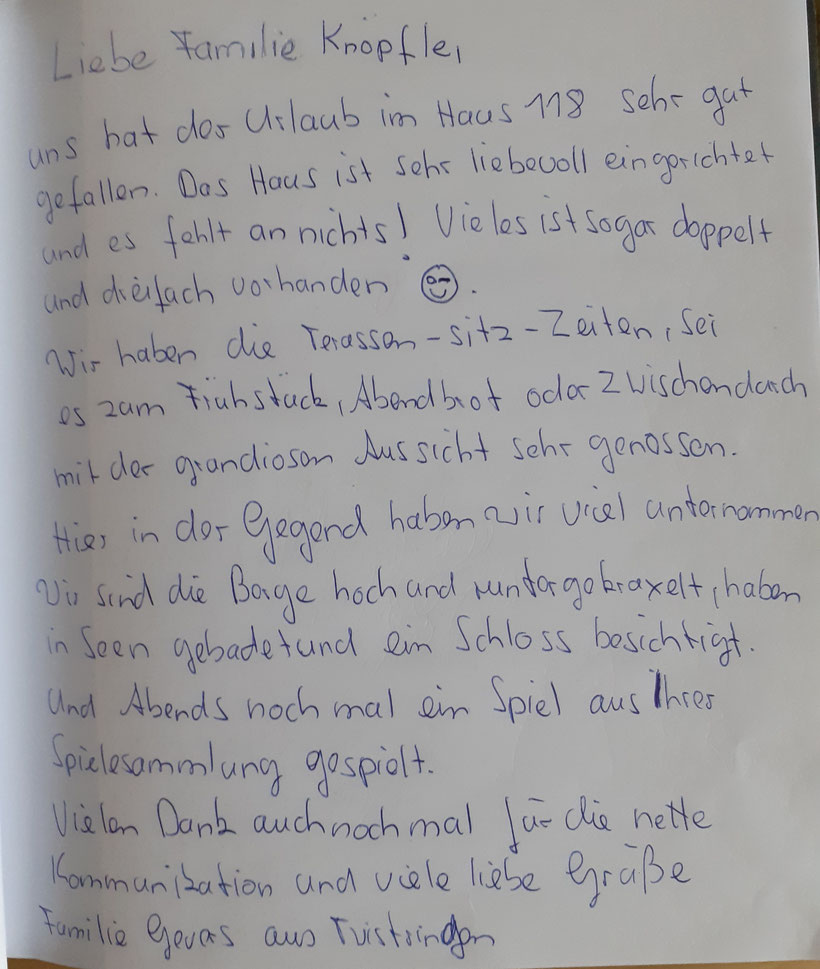 Liebe Familie Knöpfle,
uns hat der Urlaub im Haus 118 sehr gut
gefallen. Das Haus ist sehr liebevoll eingerichtet
und es fehlt an nichts! Vieles ist sogar doppelt
und dreifach vorhanden 😉.
Wir haben die Terassen-sitz-Zeiten, sei
es zum Frühstück, Abendbrot oder Zwischendurch
mit der grandiosen Aussicht sehr genossen.
Hier in der Gegend haben wir viel unternommen
Wir sind die Berge hoch und runtergekraxelt, haben
in Seen gebadet und ein Schloss besichtigt.
Und Abends noch mal ein Spiel aus Ihrer
Spielesammlung gespielt.
Vielen Dank auch noch mal für die nette
Kommunikation und viele liebe Grüße
Familie Gevers aus Twistringen